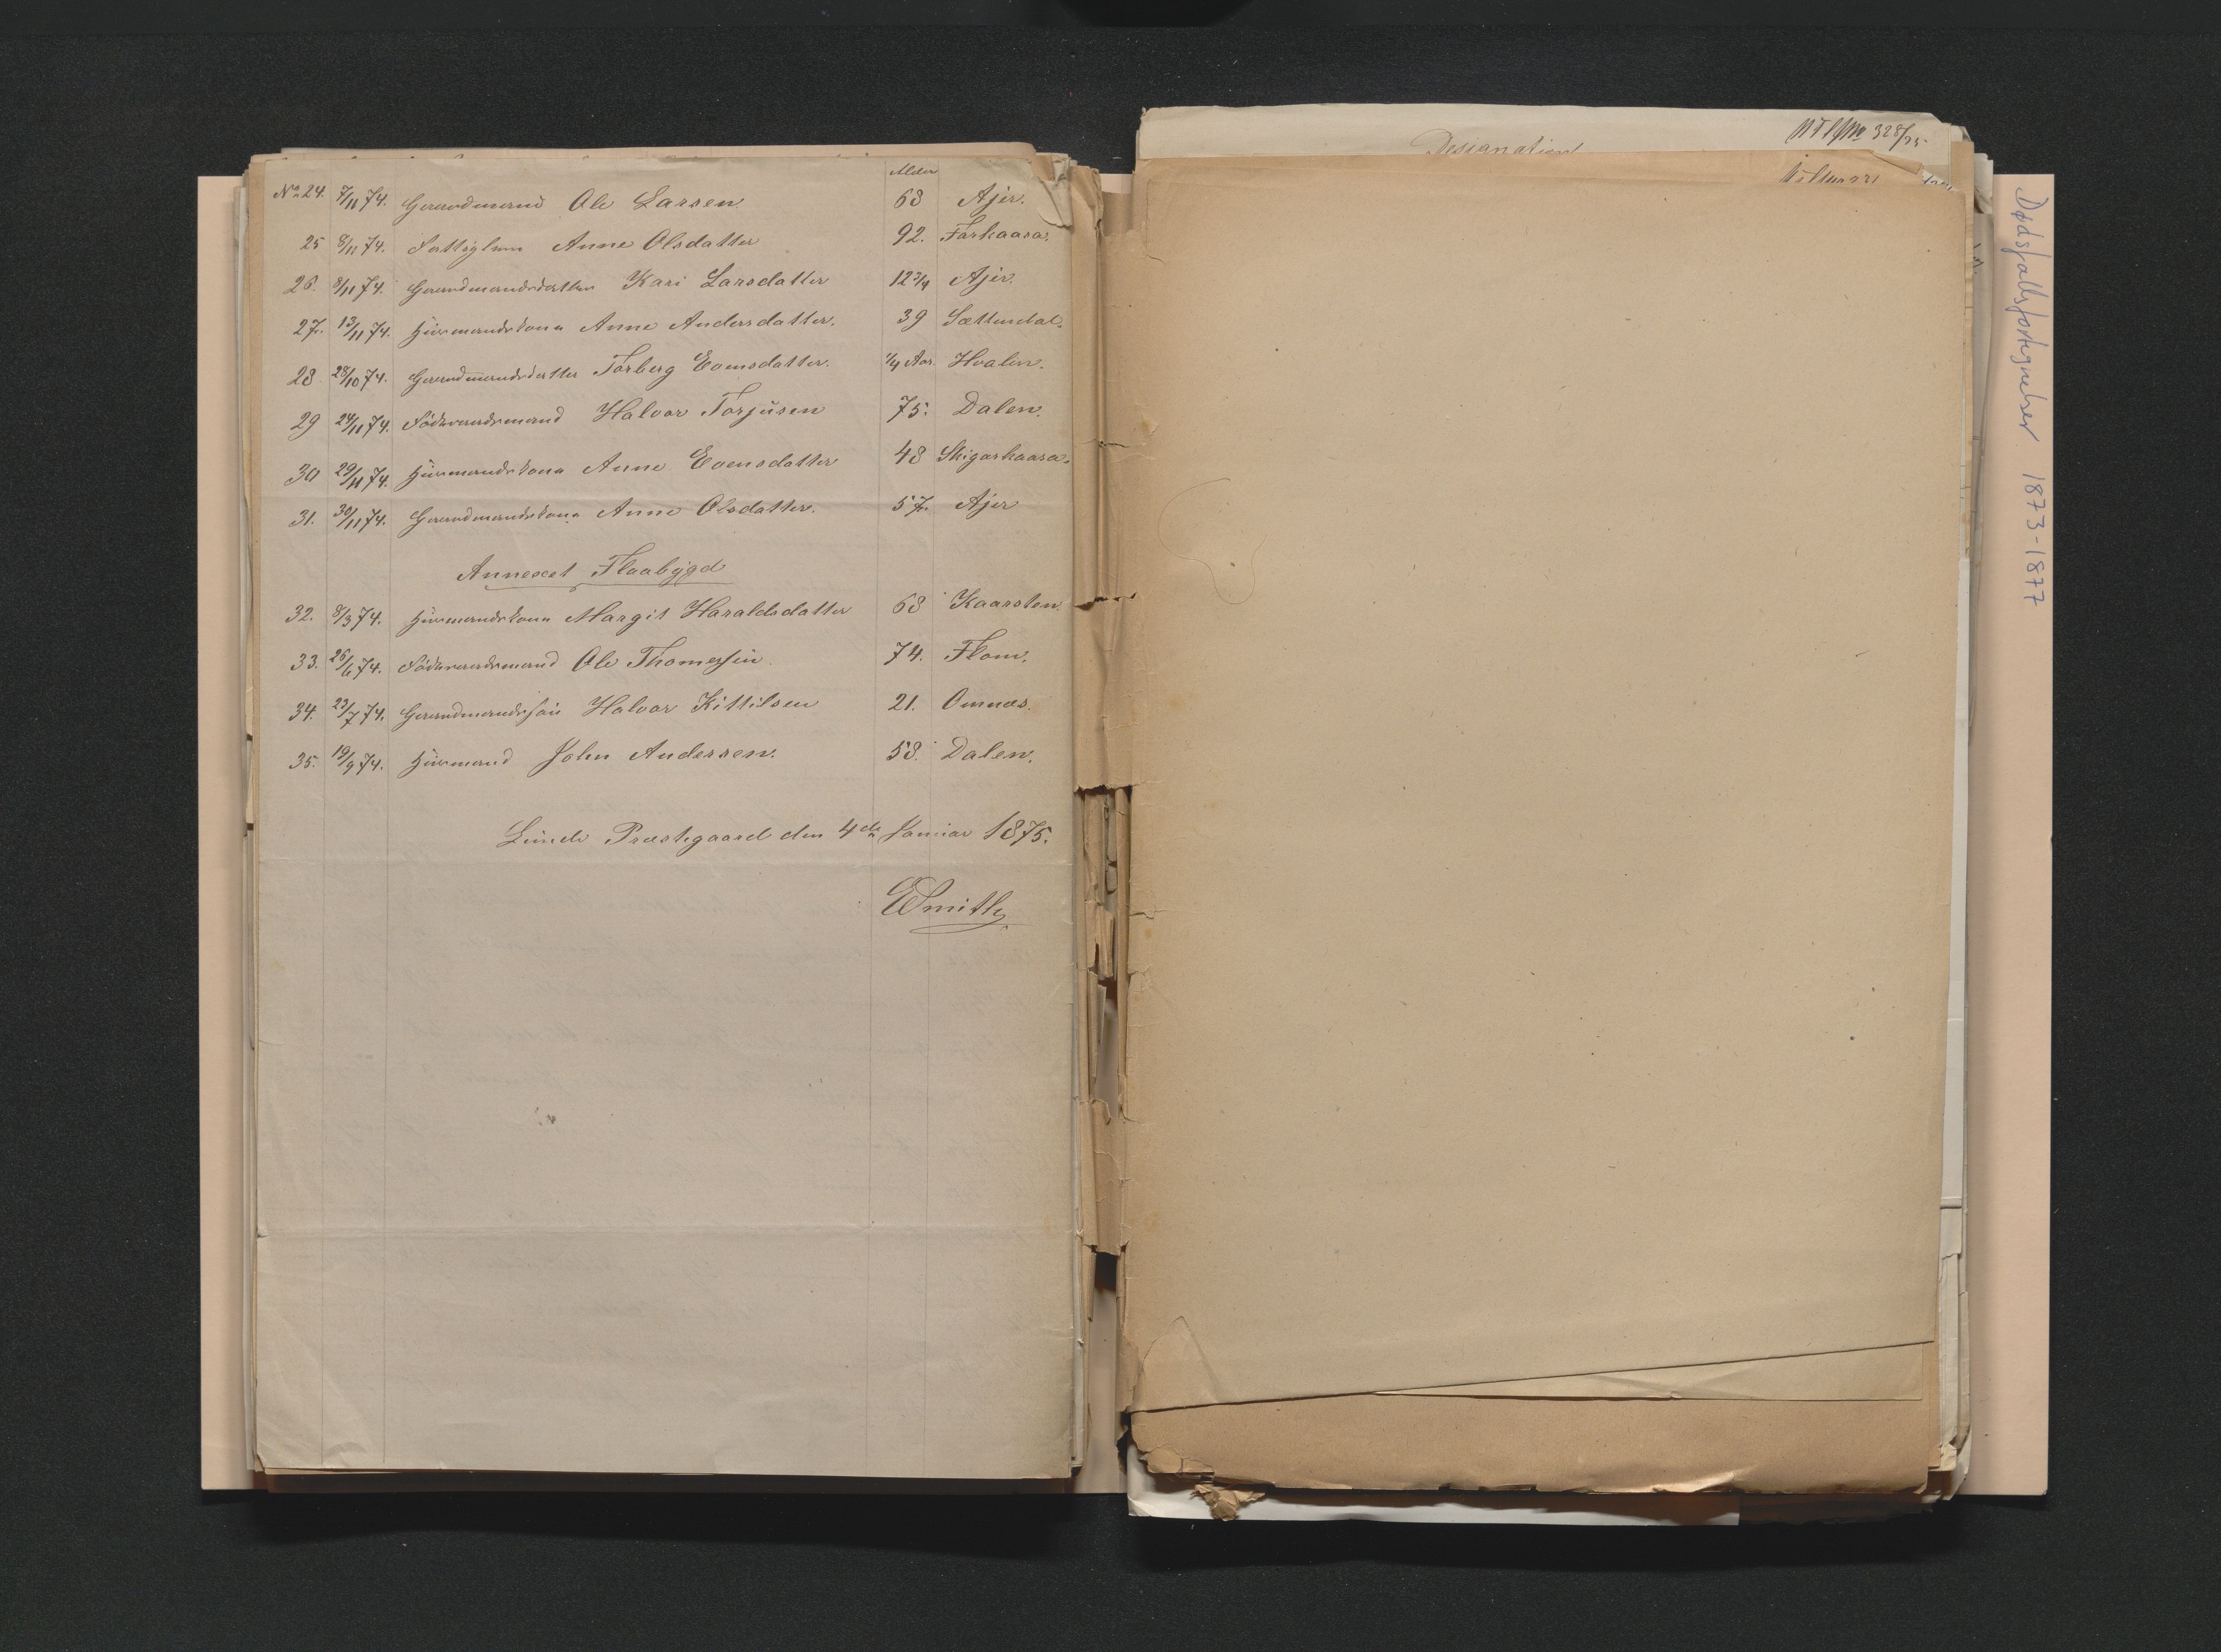 Alder
No 24. 7/11 74. Gaardmand Ole Larsen 68 Ajer.
25 8/11 74. Fattiglem Anne Olsdatter 92. Farkaasa.
26. 8/11 74. Gaardmandsdatter Kari Larsdatter 12 3/4 Ajer.
27. 13/11 74. Huusmandskone Anne Andersdatter. 39 Sættendal.
28 28/10 74. Gaardmandsdatter Torberg Evensdatter. 1/4 Aar. Hvalen.
29 24/11 74. Föderaadsmand Halvor Torjusen 75. Dalen.
30 29/11 74. Huusmandskone Anne Evensdatter 48 Skigarkaasa.
31. 30/11 74. Gaardmandskone Anne Olsdatter. 57. Ajer
Annexet Flaabygd
32. 8/3 74. Huusmandskone Margit Haraldsdatter 68 Kaarsten.
33. 26/6 74. Föderaadsmand Ole Thomessen 74. Flom.
34. 23/7 74. Gaardmandssön Halvor Kittilsen 21. Omnæs.
35. 19/9 74. Huusmand John Andersen. 58. Dalen.
Lunde Præstegaard den 4de Januar 1875.
ESmith
328/75
Designation
Dødsfallsfortegnelser 1873-1877